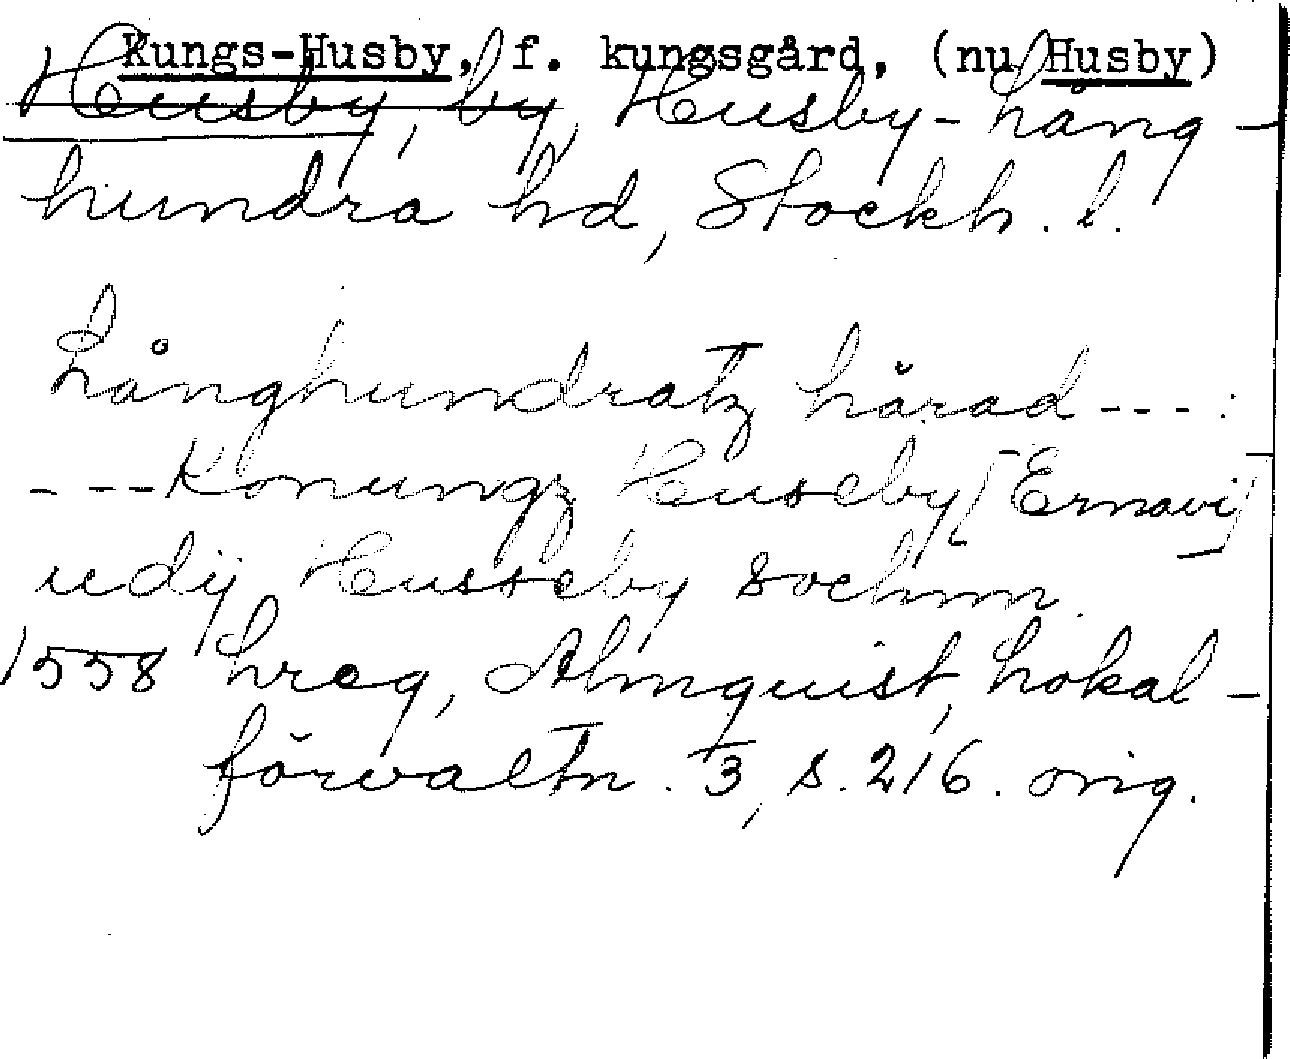 Kungs-Husby, f. kungsgård, (nu Husby)
Husby, by, Husby-Lång-
hundra hd, Stockh. l.
Långhundratz härad ---:
---Konungz Huseby [Ernavi]
udij Husseby sochnn.
1558 Lreg, Almquist, Lokal-
förvaltn. 3, s. 216. orig.